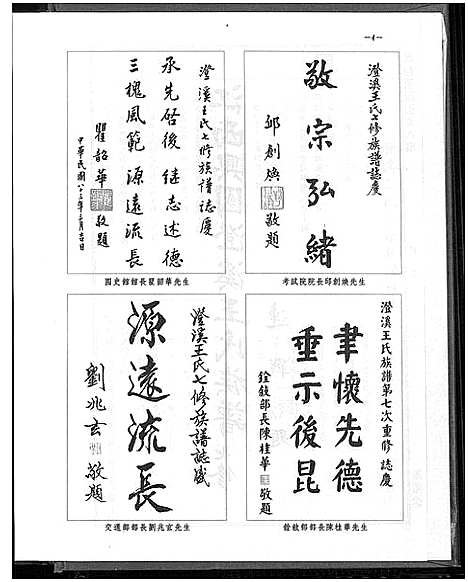 —4—
澄溪王氏七修族譜誌慶
敬宗弘緒
邱創煥
敬題
考試院院長邱創煥先生
澄溪王氏七修族譜誌慶
承先啓後 繼志述德
三槐風範 源遠流長
瞿韶華
敬題
中華民國八十三年三月吉日
國史館館長瞿韶華先生
澄溪王氏族譜第七次重修 誌慶
聿懷先德
垂示後昆
銓敘部長陳桂華
敬題
銓敘部部長陳桂華先生
澄溪王氏七修族譜誌盛
源遠流長
劉兆玄
敬題
交通部部長劉兆玄先生